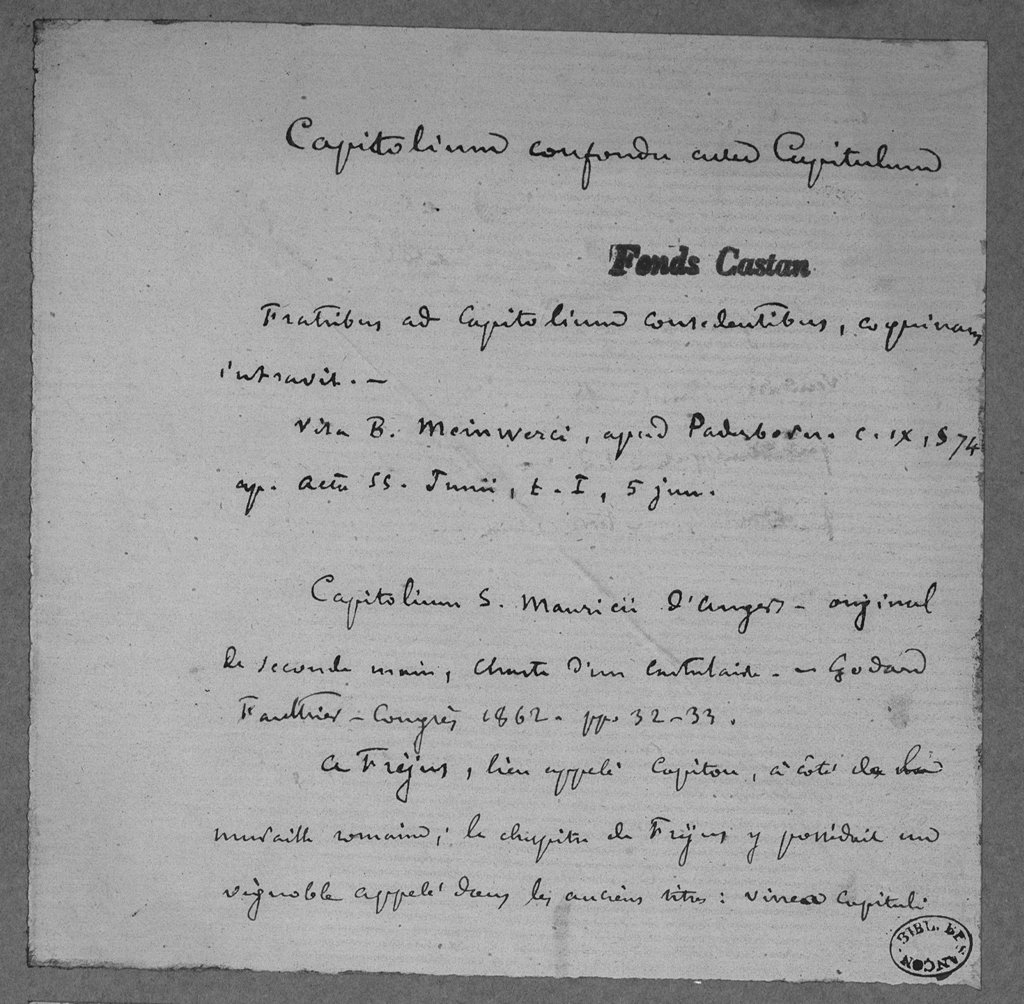 Capitolium confondu avec Capitulum
Fonds Castan
Fratribus ad Capitolium consedentibus, coquinam
intravit. —
Vita B. Meinwerci, apud Paderborn. c. IX, § 74
ap. Acta SS. Junii, t. I, 5 jun.
Capitolium S. Mauricii d'Angers — original
de seconde main, charte d'un cartulaire. — Godard
Faultrier — Congrès 1862. pp. 32-33.
A Fréjus, lieu appelé Capitou, à côté de la
muraille romaine; le chapitre de Fréjus y possédait un
vignoble appelé dans les anciens titres: vinea Capituli
BIBL. BESANÇON